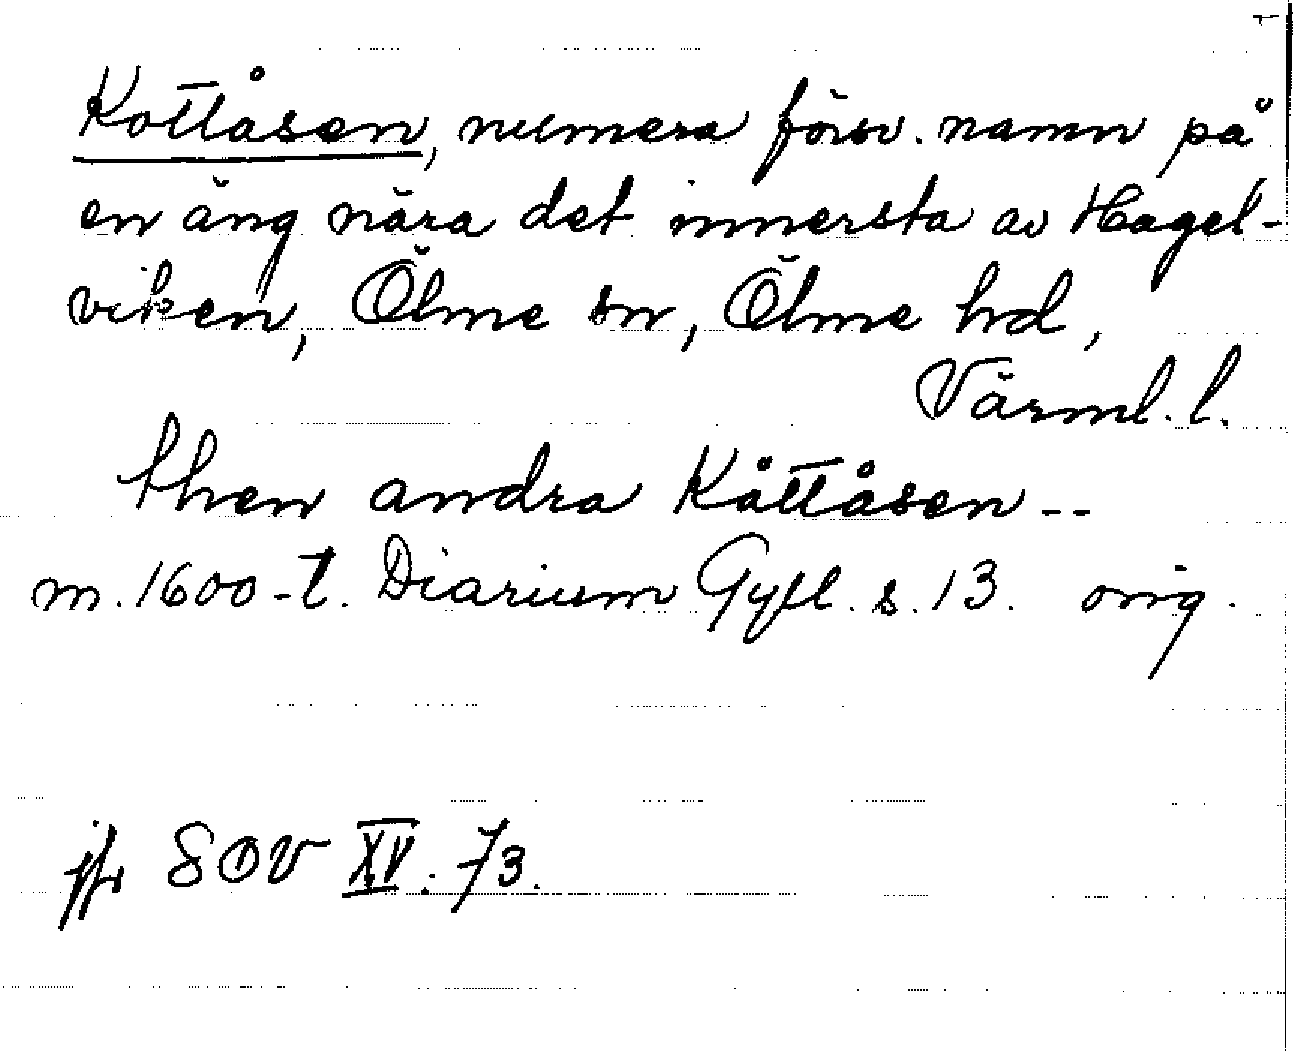 Kottåsen, numera försv. namn på
en äng nära det innersta av Hagel-
viken, Ölme sn, Ölme hd,
Värml. l.
then andra Kåttåsen --
m. 1600-t. Diarium Gyll. s. 13. orig.
jfr SOV XV: 73.